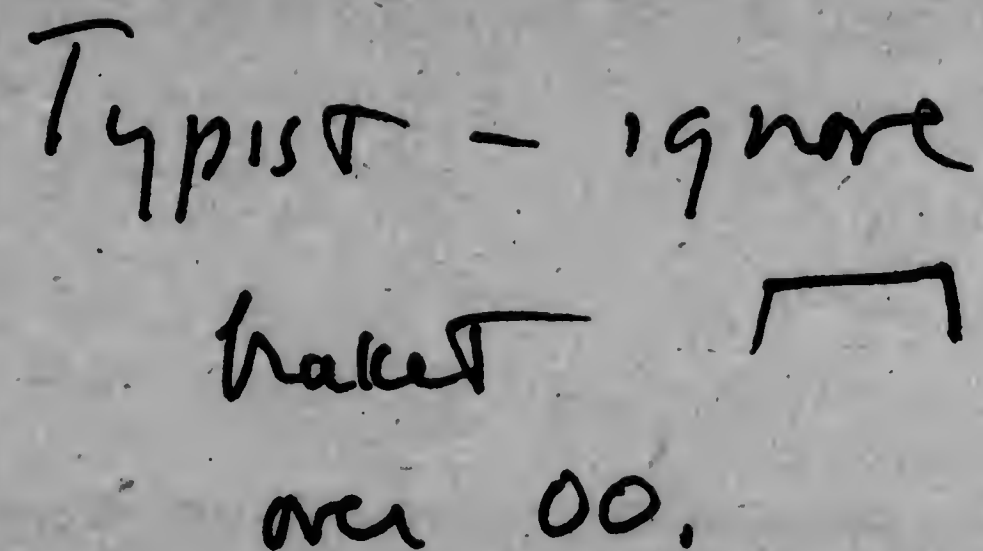 Typist - ignore
braket ⎴
over 00.